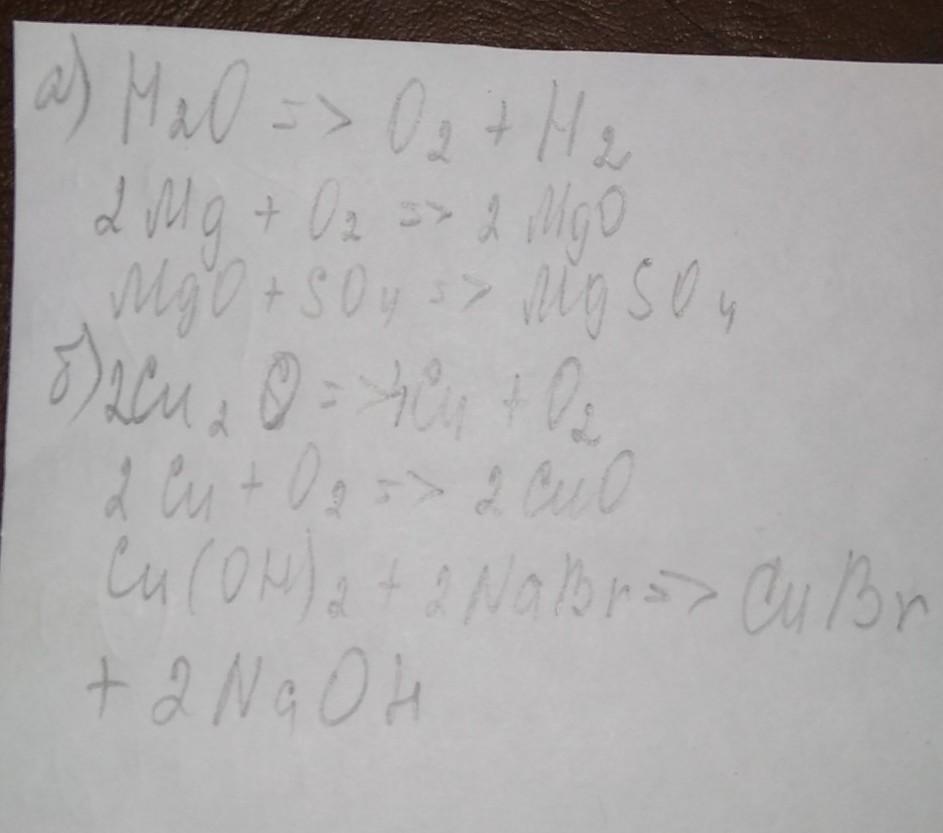 а) H2O => O2 + H2
2 Mg + O2 => 2 MgO
MgO + SO4 => MgSO4
б) 2Cu2O => 4Cu + O2
2 Cu + O2 => 2CuO
Cu(OH)2 + 2NaBr => CuBr
+ 2NaOH